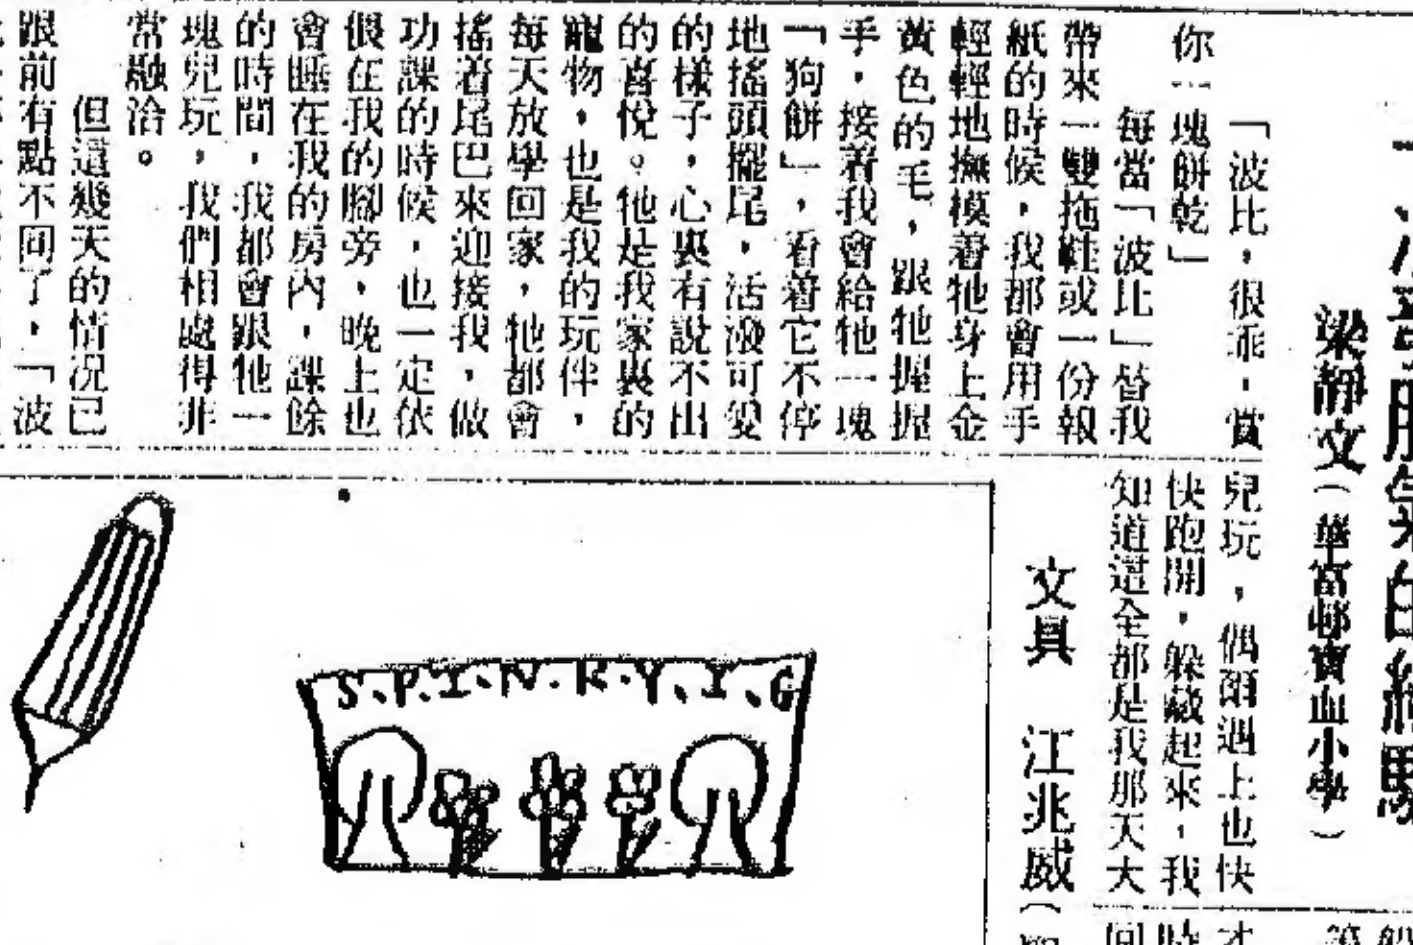 梁靜文（華富邨寶血小學）
「波比，很乖，賞
你一塊餅乾」
每當「波比」替我
帶來一雙拖鞋或一份報
紙的時候，我都會用手
輕輕地撫模着牠身上金
黃色的毛，跟牠握握
手，接着我會給牠一塊
「狗餅」，看着它不停
地搖頭擺尾，活潑可愛
的樣子，心裏有說不出
的喜悅。牠是我家裏的
寵物，也是我的玩伴，
每天放學回家，牠都會
搖着尾巴來迎接我，做
功課的時候，也一定依
偎在我的腳旁，晚上也
會睡在我的房內，課餘
的時間，我都會跟牠一
塊兒玩，我們相處得非
常融洽。
但這幾天的情況已
跟前有點不同了，「波
兒玩，偶爾遇上也快
快跑開，躲藏起來，我
知道這全都是我那天大
文具　江兆威（
S.P.I.N.K.Y.I.G